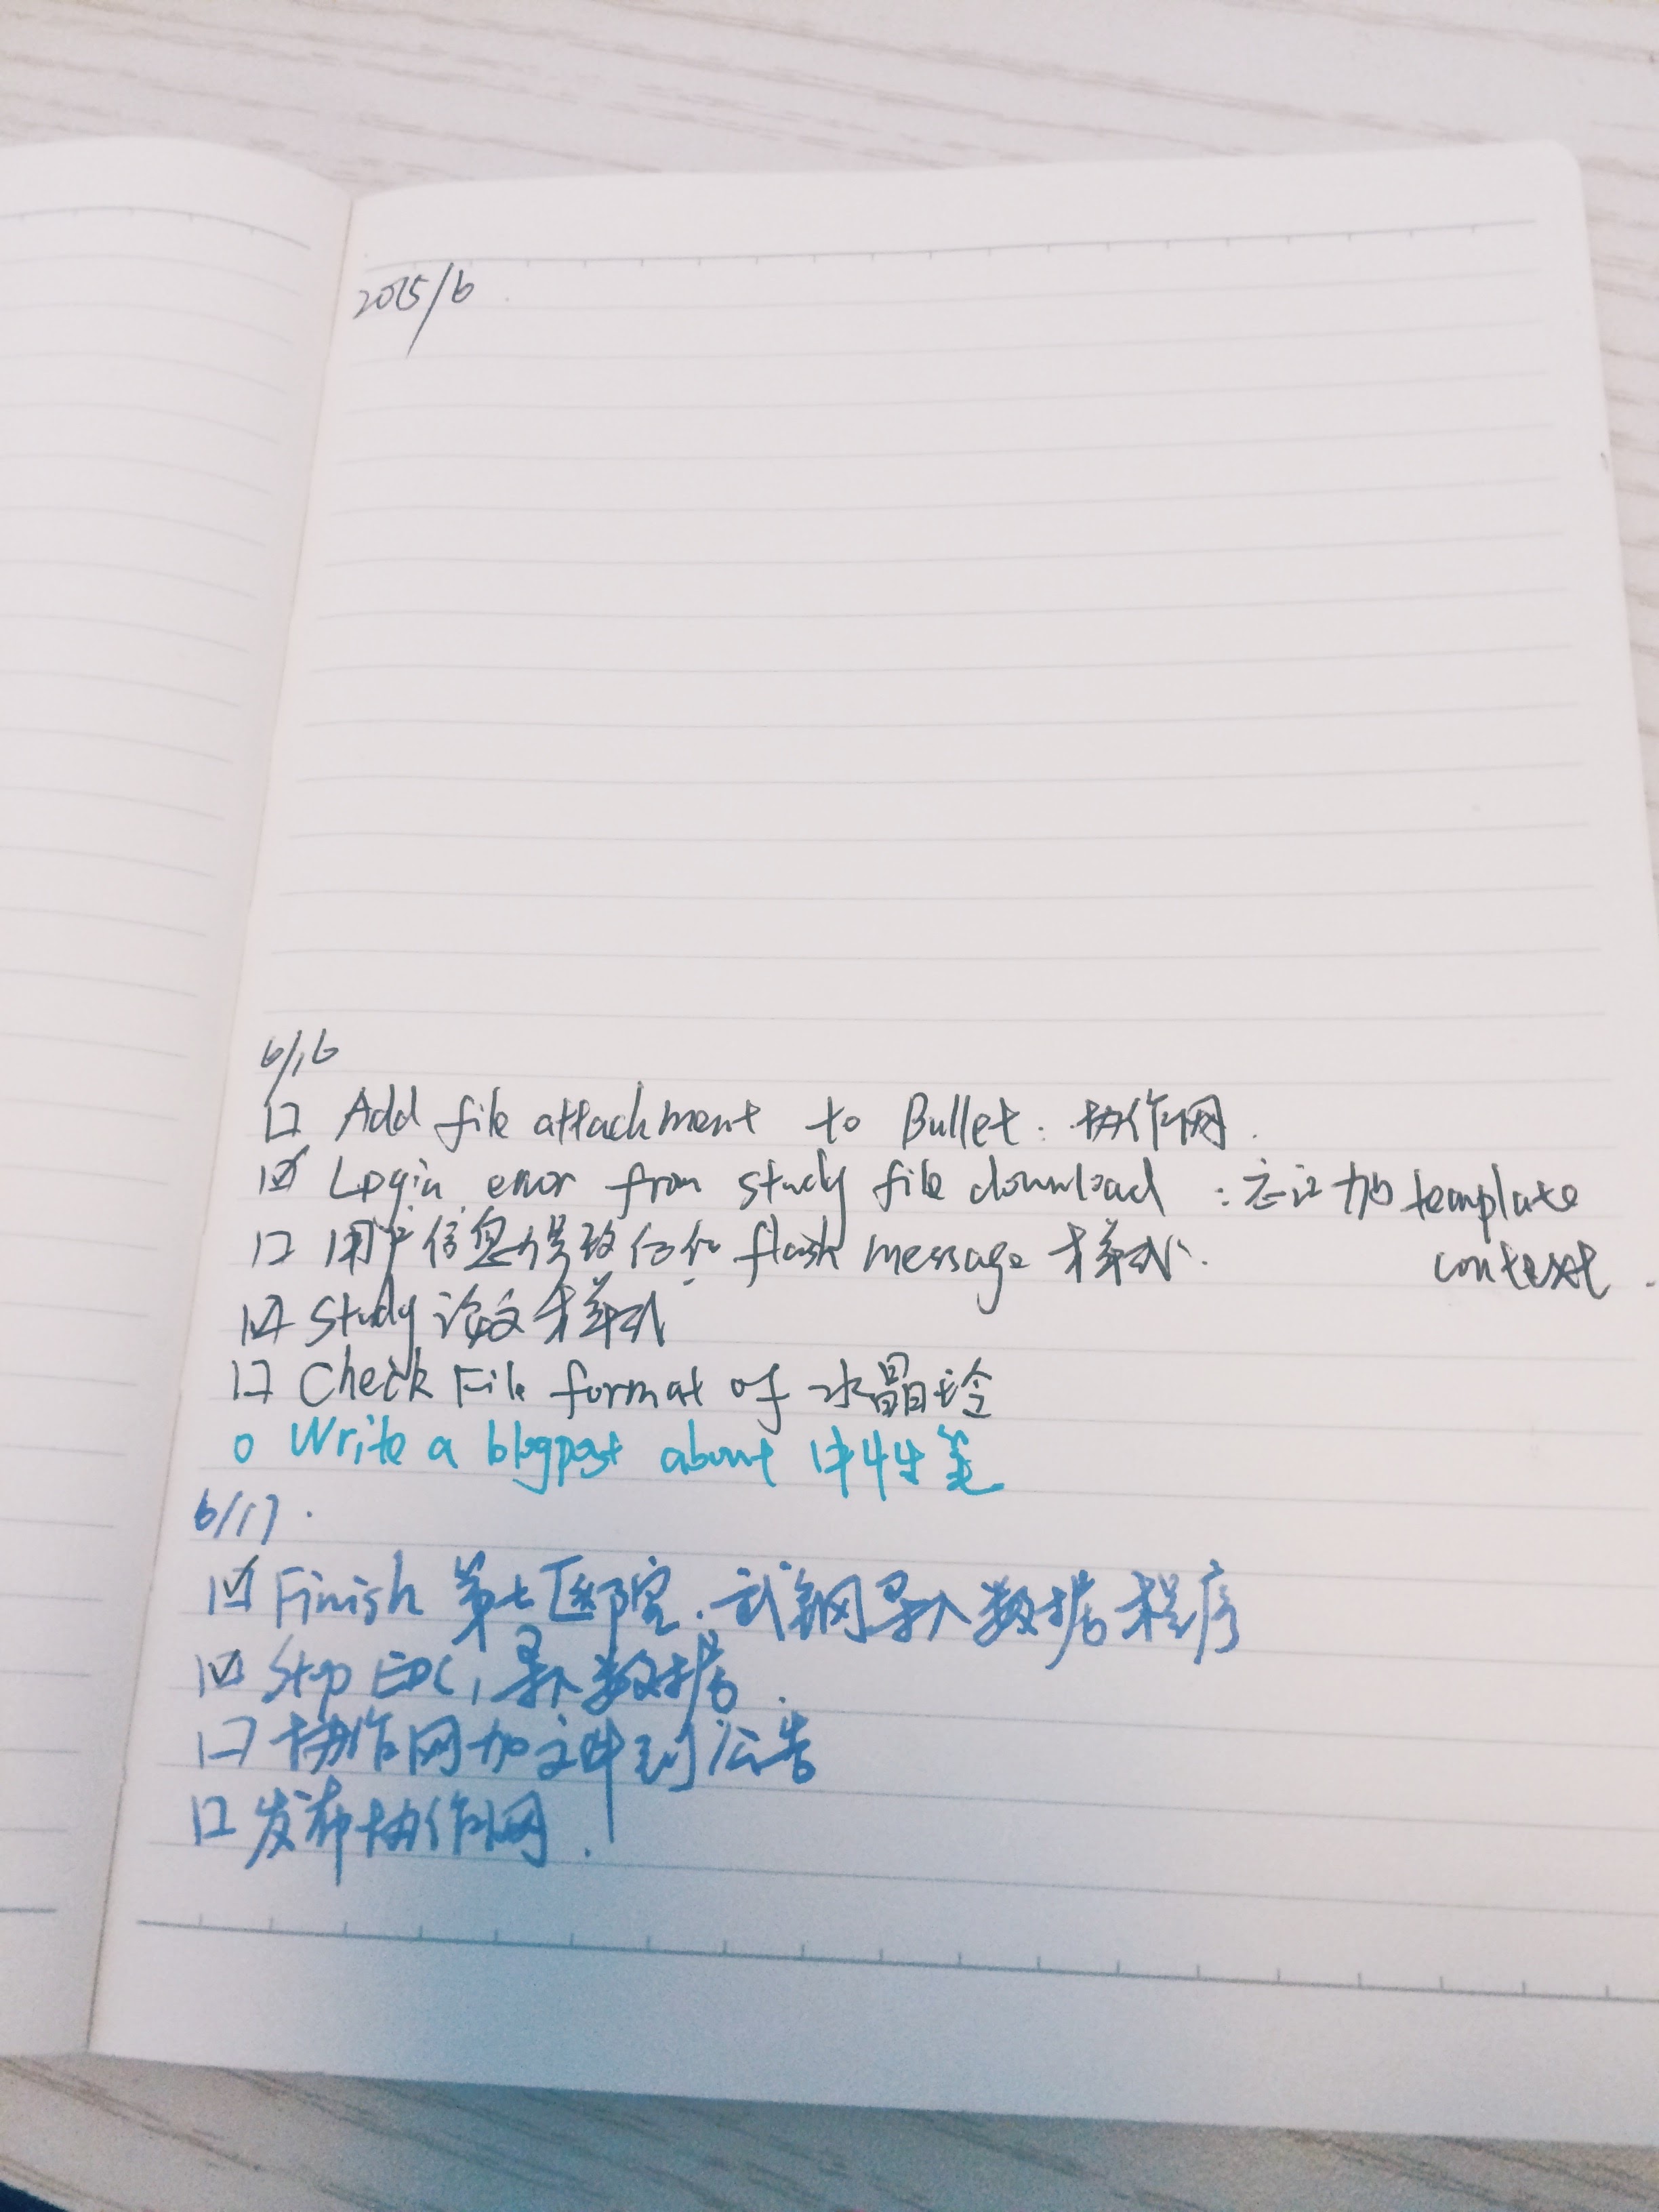 2015/6
6/16
□ Add file attachment to Bullet. 协作网.
☑ Login error from study file download : 忘记加 template
context.
□ 用户信息 flash message 样式.
☑ Study 论文样式
□ Check File format of 水晶
○ Write a blogpost about 笔
6/17.
☑ Finish 第七医院. 武钢导入数据程序
☑ Stop EDC, 导入数据.
□ 协作网加文件到公告
□ 发布协作网.